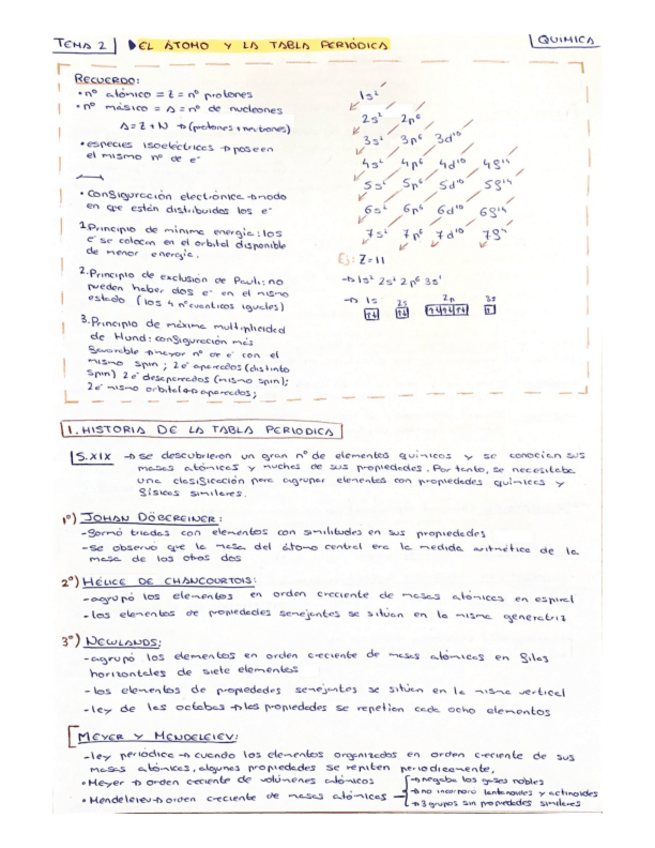 TEMA 2 EL ÁTOMO Y LA TABLA PERIÓDICA
QUIMICA
RECUERDO:
• nº atómico = Z = nº protones
• nº másico = A = nº de nucleones
A = Z + N → (protones + neutrones)
• especies isoelectricas → poseen
el mismo nº de e⁻
• Configuración electrónica → modo
en que están distribuidos los e⁻
1. Principio de mínima energía: los
e⁻ se colocan en el orbital disponible
de menor energía.
2. Principio de exclusión de Pauli: no
pueden haber dos e⁻ en el mismo
estado (los 4 nº cuanticos iguales)
3. Principio de máxima multiplicidad
de Hund: configuración más
favorable → mayor nº de e⁻ con el
mismo spin; 2e⁻ apareados (distinto
spin) 2e⁻ desapareados (mismo spin);
2e⁻ mismo orbital → apareados;
1s²
2s² 2p⁶
3s² 3p⁶ 3d¹⁰
4s² 4p⁶ 4d¹⁰ 4f¹⁴
5s² 5p⁶ 5d¹⁰ 5f¹⁴
6s² 6p⁶ 6d¹⁰ 6f¹⁴
7s² 7p⁶ 7d¹⁰ 7f¹⁴
Ej: Z=11
→ 1s² 2s² 2p⁶ 3s¹
→ 1s 2s 2p 3s
↑↓ ↑↓ ↑↓ ↑↓ ↑↓ ↑
1. HISTORIA DE LA TABLA PERIODICA
S.XIX → se descubrieron un gran nº de elementos químicos y se conocían sus
masas atómicas y muchas de sus propiedades. Por tanto, se necesitaba
una clasificación para agrupar elementos con propiedades químicas y
físicas similares.
1º) JOHAN DÖBEREINER:
- formó triadas con elementos con similitudes en sus propiedades
- se observó que la masa del átomo central era la medida aritmética de la
masa de los otros dos
2º) HÉLICE DE CHANCOURTOIS:
- agrupó los elementos en orden creciente de masas atómicas en espiral
- los elementos de propiedades semejantes se sitúan en la misma generatriz
3º) NEWLANDS:
- agrupó los elementos en orden creciente de masas atómicas en filas
horizontales de siete elementos
- los elementos de propiedades semejantes se sitúan en la misma vertical
- ley de las octavas → las propiedades se repetían cada ocho elementos
MEYER Y MENDELEIEV:
- ley periódica → cuando los elementos organizados en orden creciente de sus
masas atómicas, algunas propiedades se repiten periodicamente,
• Meyer → orden creciente de volúmenes atómicos
• Mendeleiev → orden creciente de masas atómicas
→ negaba los gases nobles
→ no incorporó lantanoides y actinoides
→ 3 grupos sin propiedades similares